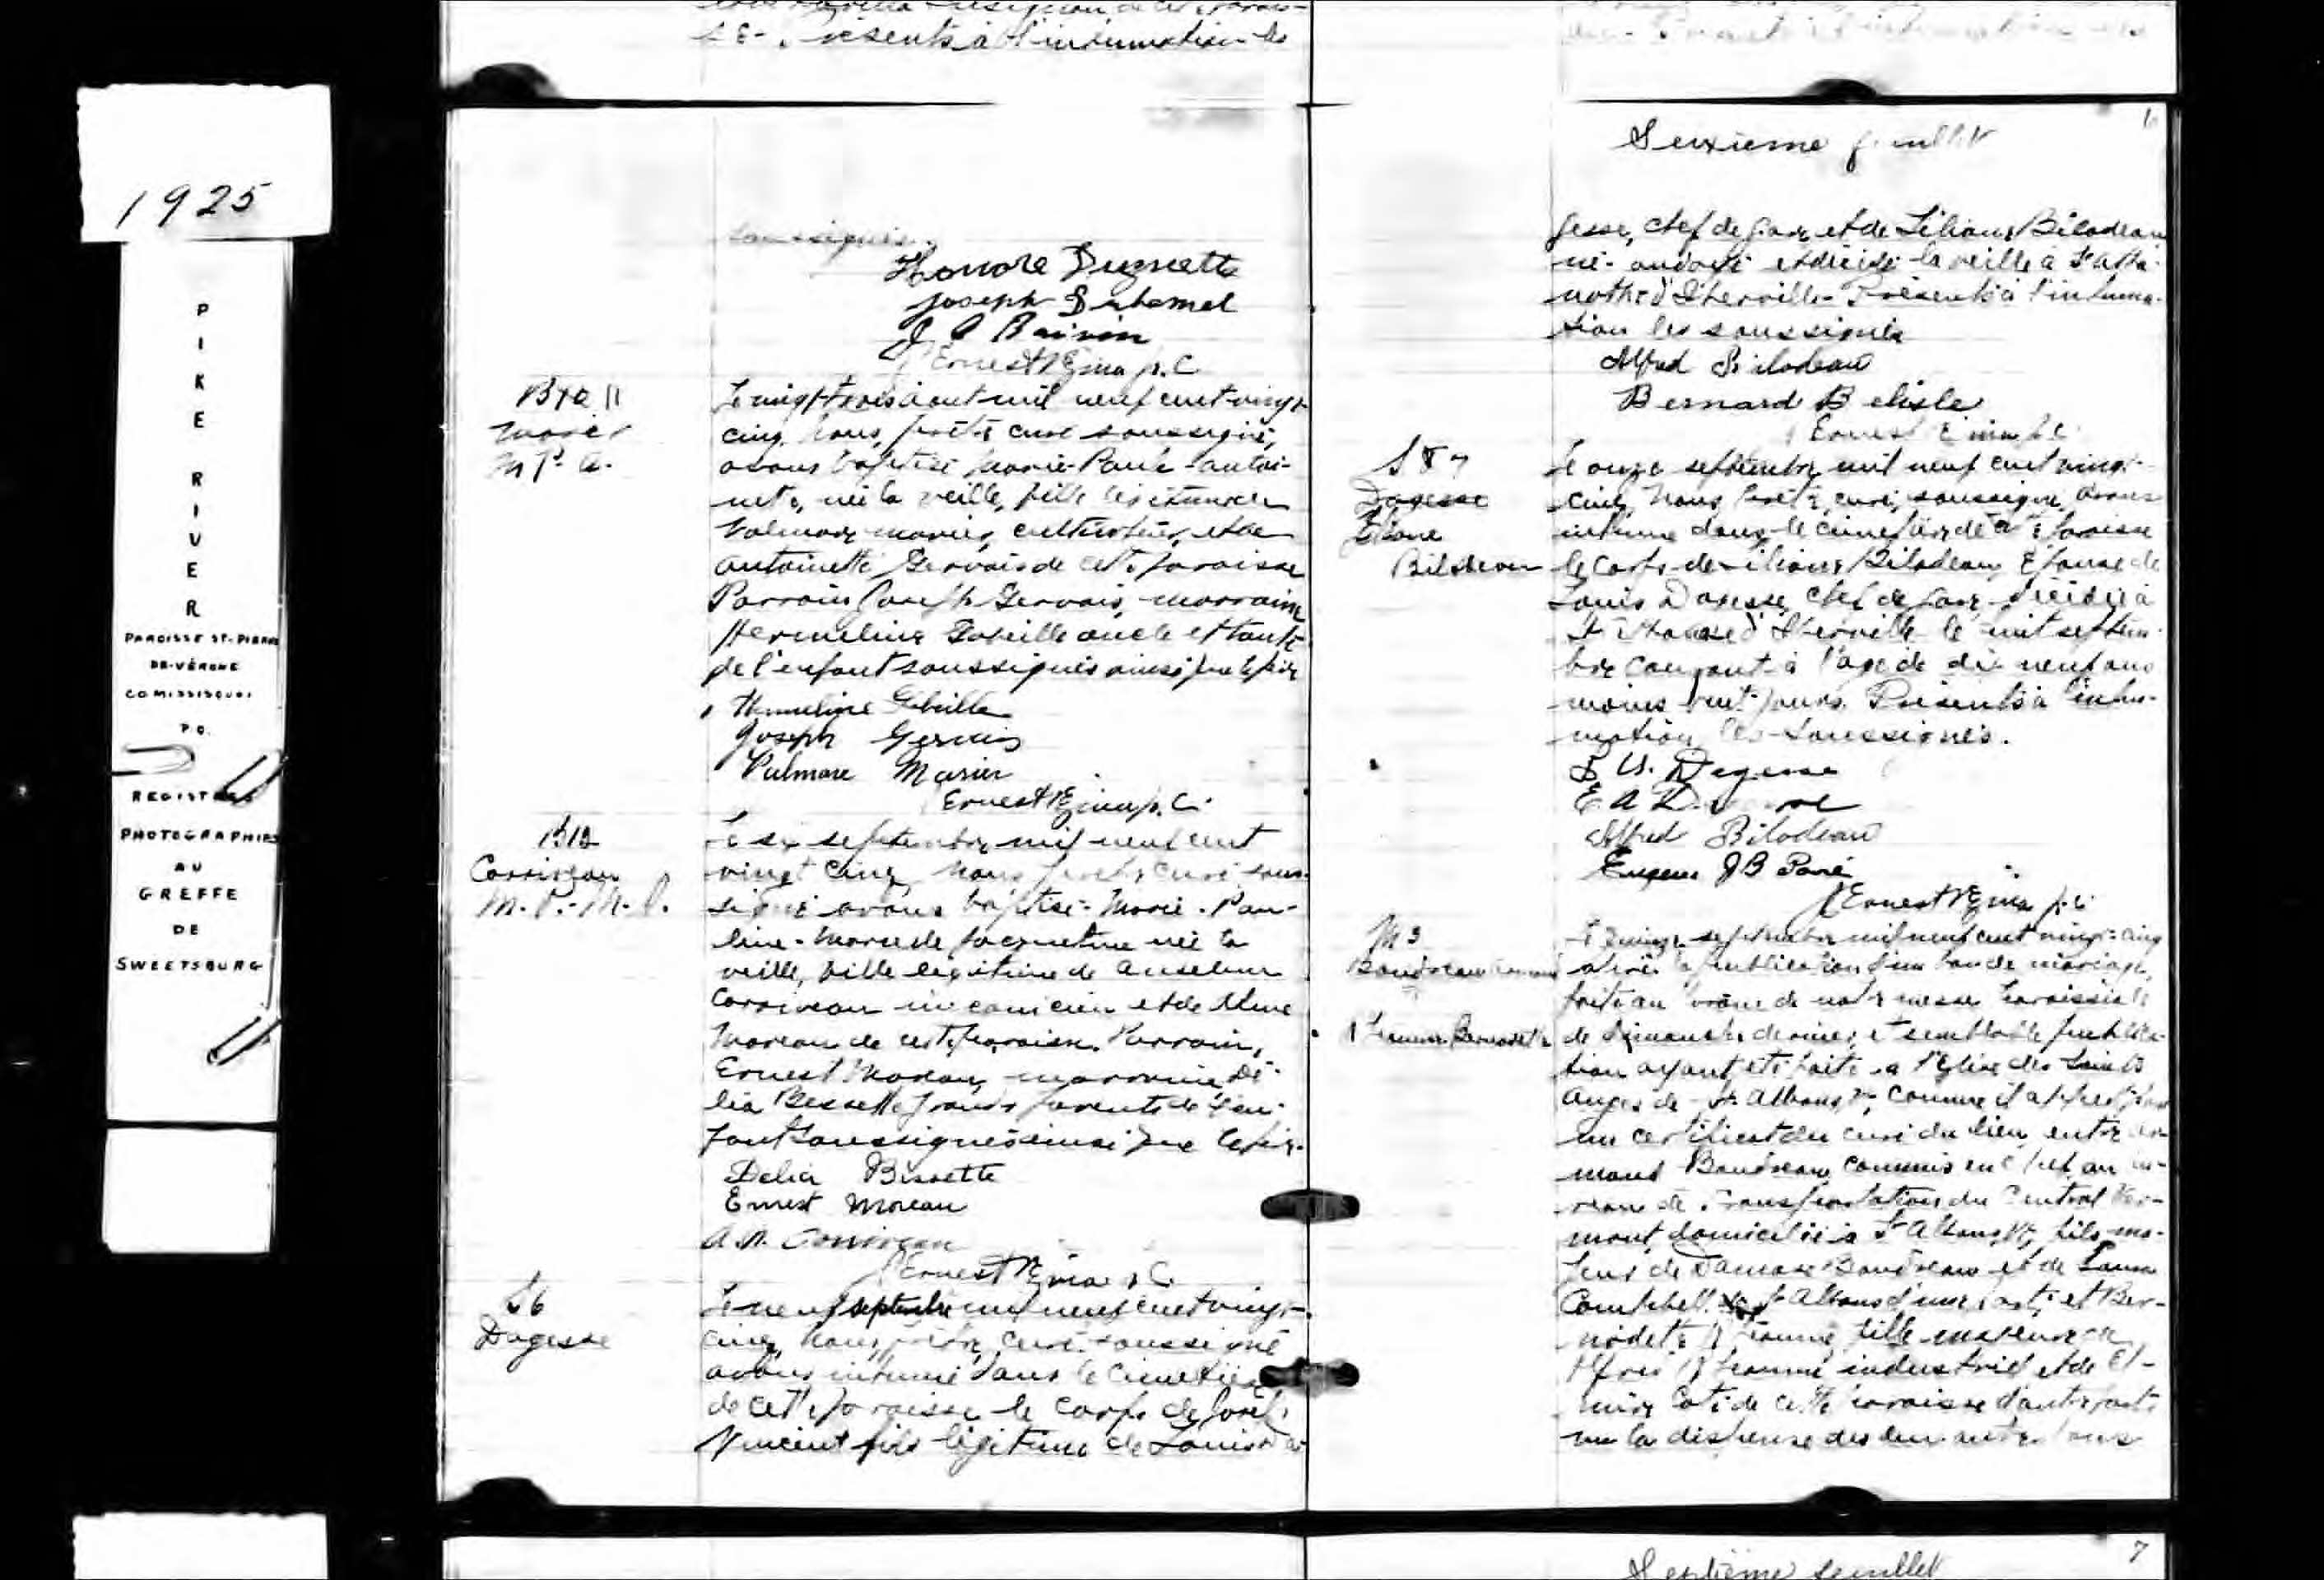 1925
PIKE RIVER
PAROISSE ST-PIERRE
DE-VÉRONE
COMISSISQUOI
P.Q.
REGISTRES
PHOTOGRAPHIES
AU
GREFFE
DE
SWEETSBURG
présents à l'inhumation les
soussignés.
Honoré Duquette
Joseph Duhamel
J A Boivin
Ernest Pj.c.
B 11
Marier
M P. A.
Le vingt trois août mil neuf cent vingt-
cinq, nous, prêtre curé soussigné,
avons baptisé Marie-Paule-Antoi-
nette, née la veille, fille légitime de
Valmore Marier, cultivateur, et de
Antoinette Gervais de cette paroisse
Parrain Joseph Gervais, marraine
Hermeline Lebeille oncle et tante
de l'enfant soussignés ainsi que le père
Hermeline
Joseph Gervais
Valmore Marier
Ernest p.c.
B12
Corriveau
M.P.-M.J.
Le six septembre mil neuf cent
vingt cinq, nous prêtre curé sous-
signé avons baptisé Marie-Pau-
line-Marcelle Jacqueline née la
veille, fille légitime de Anselme
Corriveau mécanicien et de Alma
Moreau de cette paroisse. Parrain,
Ernest Moreau, marraine Dé-
lia Bessette grands parents de l'en-
fant soussignés ainsi que le père.
Delia Bessette
Ernest Moreau
A.N. Corriveau
Ernest p.c.
S6
Dagesse
Le neuf septembre mil neuf cent vingt-
cinq, nous, prêtre, curé soussigné
avons inhumé dans le cimetière
de cette paroisse le corps de Joseph
Vincent fils légitime de Louis Da-
6
Sixième feuillet
gesse, chef de gare et de Liliane Bilodeau
né ondoyé et décédé la veille à St Atha-
nase d'Iberville. Présents à l'inhuma-
tion les soussignés
Alfred Bilodeau
Bernard Belisle
Ernest p.c.
S 7
Dagesse
Liliane
Bilodeau
Le onze septembre mil neuf cent vingt-
cinq, nous, prêtre, curé, soussigné, avons
inhumé dans le cimetière de cette paroisse
le corps de Liliane Bilodeau, épouse de
Louis Dagesse, chef de gare, décédée à
St Athanase d'Iberville le huit septem-
bre courant à l'âge de dix neuf ans
moins huit jours. Présents à l'inhu-
mation les soussignés.
L U. Dagesse
E. A.
Alfred Bilodeau
Eugene J B Paré
Ernest p.c.
M 3
Boudreau
Bernadette
Le quinze septembre mil neuf cent vingt-cinq
après la publication d'un ban de mariage,
faite au prône de notre messe paroissiale
de dimanche dernier, et semblable publica-
tion ayant été faite à l'Eglise des Saints
Anges de St Albans Vt, comme il appert par
un certificat du curé du lieu, entre Ar-
mand Boudreau, commis en chef au bu-
reau de Transportation du Central Ver-
mont, domicilié à St Albans, Vt, fils ma-
jeur de Damase Boudreau et de Laura
Campbell St Albans d'une part, et Ber-
nadette fille majeure de
industriel et de El-
mire Coté de cette paroisse d'autre part
vu la dispense des deux autres bans
7
Septième feuillet